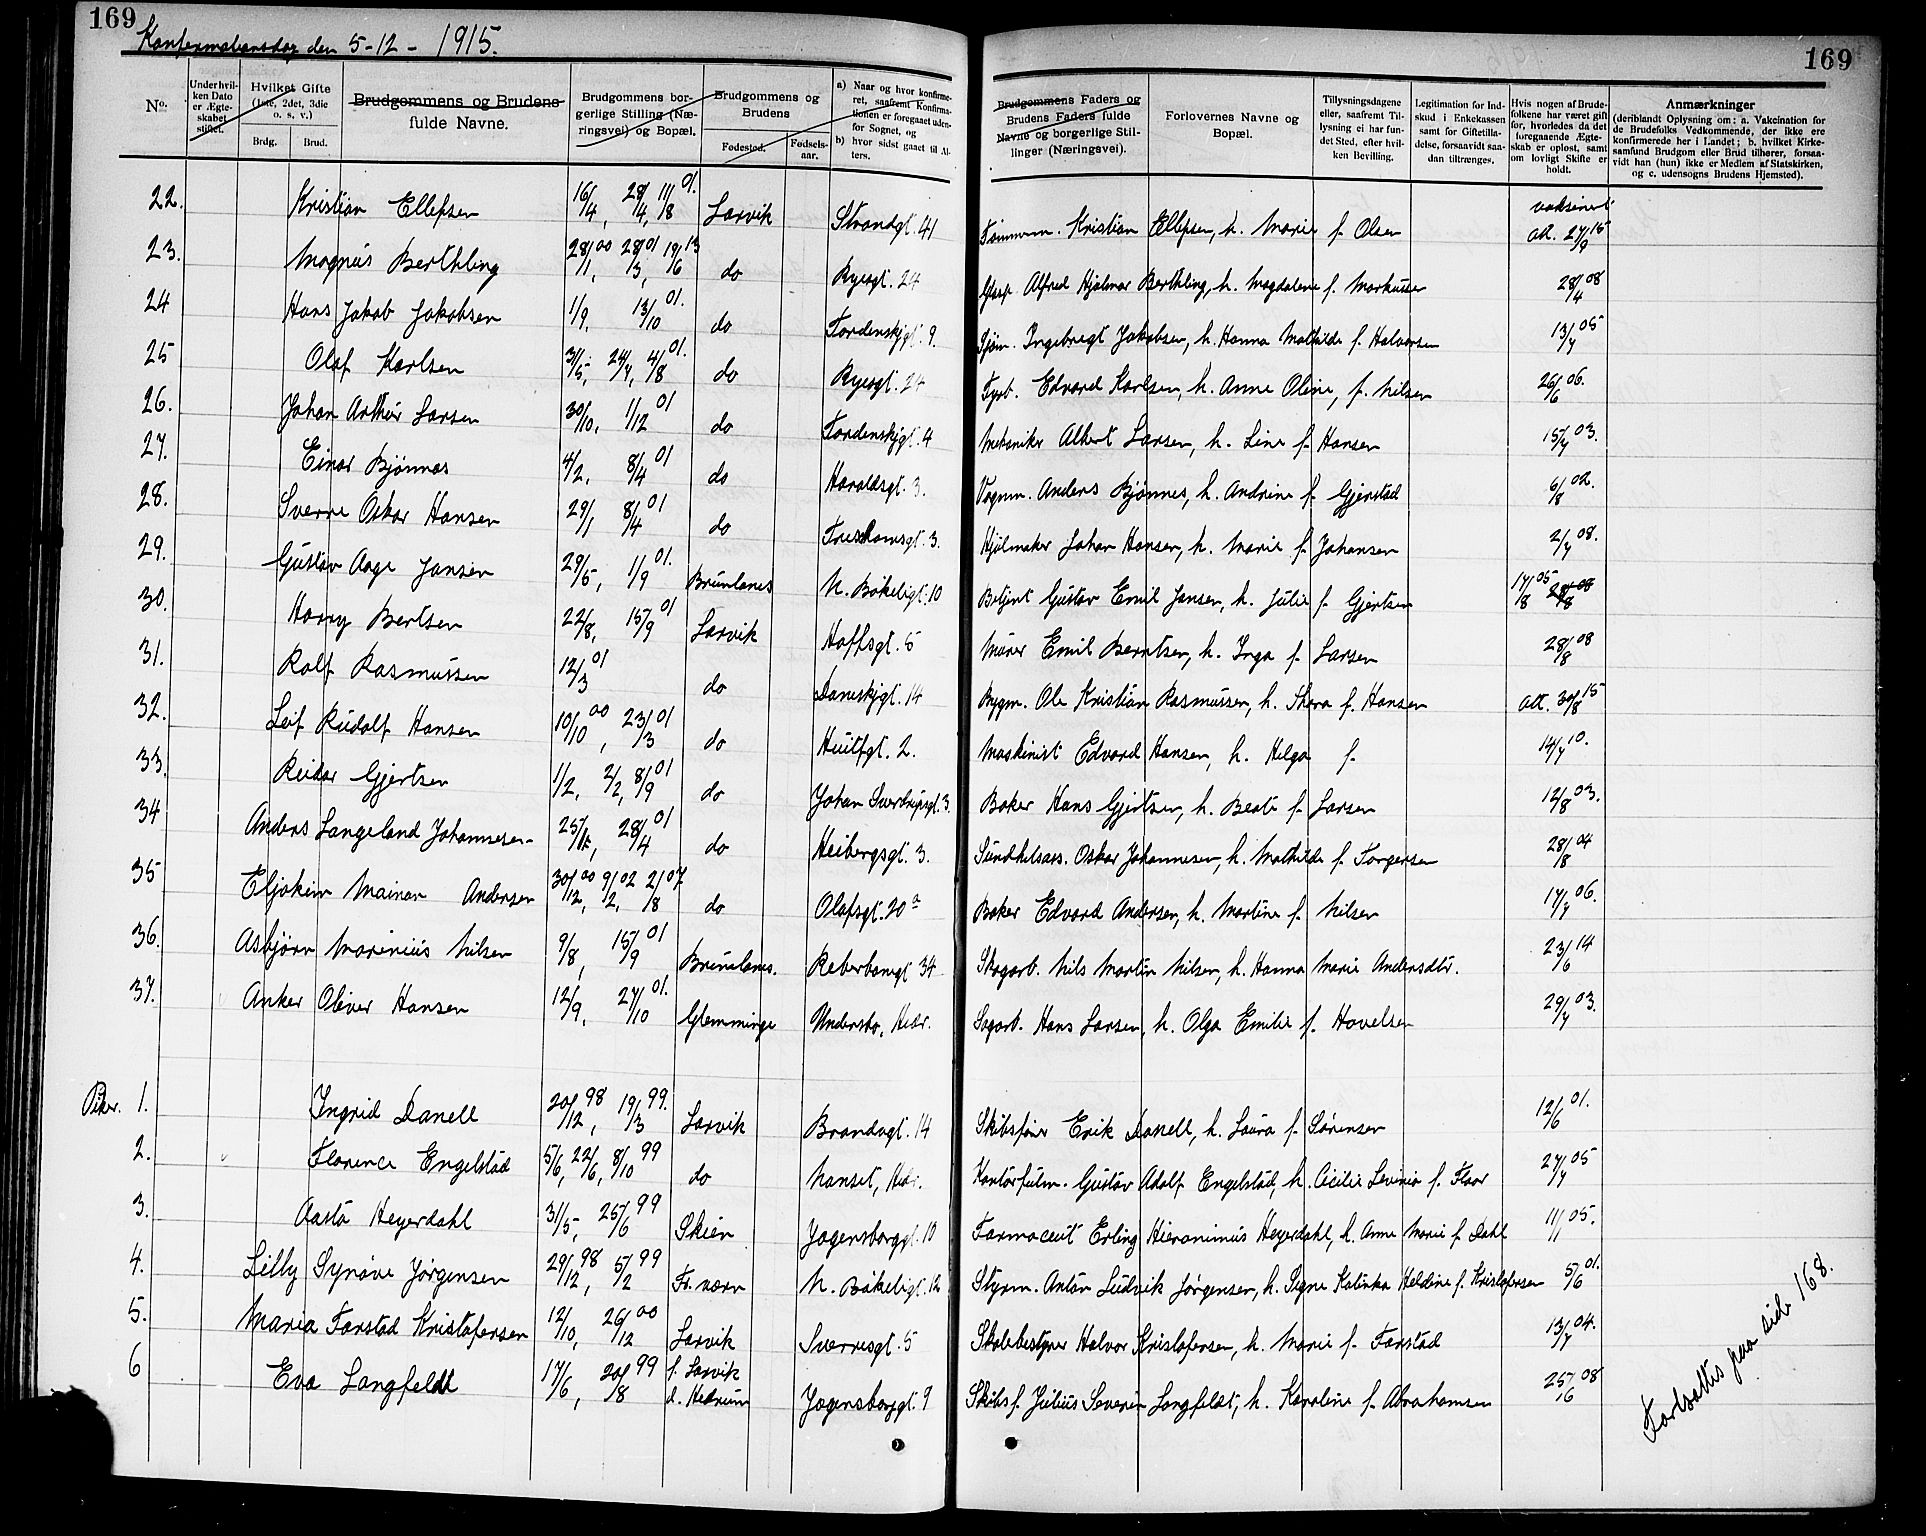 169
Konfirmationsdag den 5-12-1915.
169
No.
Under hvilken Dato er Ægteskabet stiftet.
Hvilket Gifte (1ste, 2det, 3die o. s. v.)
Brdg. Brud.
Brudgommens og Brudens fulde Navne.
Brudgommens borgerlige Stilling (Næringsvei) og Bopæl.
Brudgommens og Brudens
Fødested. Fødselsaar.
a) Naar og hvor konfirmeret, saafremt Konfirmationen er foregaaet udenfor Sognet, og
b) hvor sidst gaaet til Alters.
Brudgommens Faders og Brudens Faders fulde Navne og borgerlige Stillinger (Næringsvei).
Forlovernes Navne og Bopæl.
Tillysningsdagene eller, saafremt Tillysning ei har fundet Sted, efter hvilken Bevilling.
Legitimation for Indskud i Enkekassen samt for Giftetilladelse, forsaavidt saadan tiltrænges.
Hvis nogen af Brudefolkene har været gift før, hvorledes da det foregaaende Ægteskab er opløst, samt om lovligt Skifte er holdt.
Anmærkninger
(deriblandt Oplysning om: a. Vakcination for de Brudefolks Vedkommende, der ikke ere konfirmerede her i Landet; b. hvilket Kirkesamfund Brudgom eller Brud tilhører, forsaavidt han (hun) ikke er Medlem af Statskirken, og c. udensogns Brudens Hjemsted).
vaksinert
22. Kristian Ellefsen 16/4, 28/4, 11/8 01. Larvik Strandgt. 41 Tømmerm. Kristian Ellefsen, h. Marie f. Olsen att. 27/9 15
23. Magnus Berthling 28/1 00, 28/3 01, 19/6 13 do Ryesgt. 24 Alfred Hjalmar Berthling, h. Magdalene f. Markussen 28/4 08
24 Hans Jakob Jakobsen 1/9, 13/10 01. do Tordenskjgt. 9. Sjøm. Ingebregt Jakobsen, h. Hanna Mathilde f. Halvorsen 13/7 05
25 Olaf Karlsen 31/5, 24/7, 4/8 01. do Ryesgt. 24 Fyrb. Edvard Karlsen, h. Anne Oline, f. Nilsen 26/6 06.
26. Johan Arthur Larsen 30/10, 1/12 01 do Tordenskjgt. 4 Mekaniker Albert Larsen, h. Line f. Hansen 15/7 03.
27. Einar Bjønnes 4/2, 8/4 01 do Haraldsgt. 3. Vognm. Anders Bjønnes, h. Andrine f. Gjerstad 6/8 02.
28. Sverre Oskar Hansen 29/1 8/4 01 do 3. Hjulmaker Johan Hansen, h. Marie f. Johansen 2/7 08.
29. Gustav Aage Jansen 29/5, 1/9 01. Brunlanes N. Bøkeligt. 10 Betjent Gustav Emil Jansen, h. Julie f. Gjertsen 17/8 05 28/8 08
30. Harry Bertsen 22/8, 15/9 01 Larvik Hoffsgt. 5 Murer Emil Berntsen, h. Inga f. Larsen 28/8 08
31. Rolf Rasmussen 12/3 01 do Daneskjgt. 14 Bygm. Ole Kristian Rasmussen, h. Thora f. Hansen att. 30/8 15
32. Leif Rudolf Hansen 10/10 00, 23/3 01 do Huitfgt. 2. Maskinist Edvard Hansen, h. Helga f. 14/7 10.
33. Reidar Gjertsen 1/2, 2/2, 8/9 01 do Johan Sverdrupsgt. 3. Baker Hans Gjertsen, h. Beate f. Larsen 12/8 03.
34 Anders Langeland Johannesen 28/4 01 do Heibergsgt. 3. Sundhetsass. Oskar Johannesen, h. Mathilde f. Torgersen 28/8 04
35 Eljakim Mainar Andersen 30/12 00, 9/2 02, 2/8 07 do Olafsgt. 20 a Baker Edvard Andersen, h. Martine f. Nilsen 17/7 06.
36. Asbjørn Marinius Nilsen 9/8, 15/9 01 Brunlanes. Reberbanegt 34 Skogarb. Nils Martin Nilsen, h. Hanna Marie Andersdtr. 23/6 14
37. Anker Oliver Hansen 12/9, 27/10 01. Glemminge Undersbo, Hedr. Sagarb. Hans Larsen, h. Olga Emilie f. Hovelsen 29/7 03.
Piker. 1. Ingrid Danell 20/12 98, 19/3 99. Larvik Brandvgt. 14 Skibsfører Erik Danell, h. Laura f. Sørensen 12/6 01.
2. Florence Engelstad 5/6, 22/6, 8/10 99 do Nanset, Hedr. Kontorfulm. Gustav Adolf Engelstad, h. Cicilie Levinia f. Floor 27/7 05
3. Aasta Heyerdahl 31/5, 25/6 99 Skien Jegersborggt. 10 Farmaceut Erling Hieronimus Heyerdahl, h. Anne Marie f. Dahl 11/1 05.
4. Lilly Synøve Jørgensen 29/12 98, 5/2 99 Fr. værn N. Bøkeligt. 12 Styrm. Anton Ludvik Jørgensen, h. Signe Katinka Heldine f. Kristofersen 5/6 01.
5. Maria Farstad Kristofersen 12/10, 26/12 00 Larvik Sverresgt. 5 Skolebestyrer Halvor Kristofersen, h. Marie f. Farstad 13/7 04.
6 Eva Langfeldt 17/6, 20/8 99 f. Larvik d. Hedrum Jegersborggt. 9 Skibsf. Julius Severin Langfeldt, h. Karoline f. Abrahamsen 25/6 08
Fortsættes paa side 168.